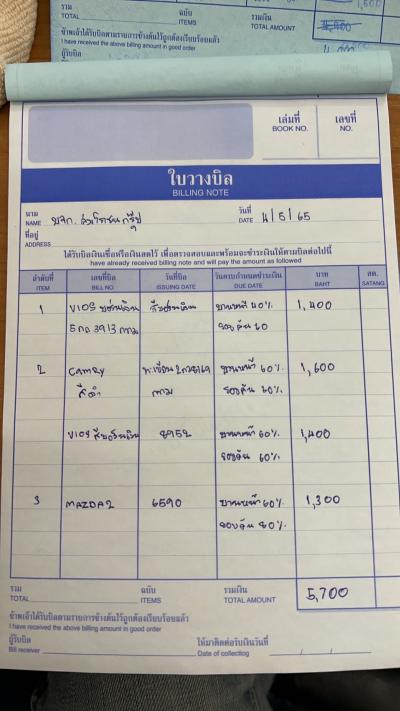 รวม ฉบับ รวมเงิน
TOTAL ITEMS TOTAL AMOUNT
ข้าพเจ้าได้รับบิลตามรายการข้างต้นไว้ถูกต้องเรียบร้อยแล้ว
I have received the above billing amount in good order
ผู้รับบิล
เล่มที่ เลขที่
BOOK NO. NO.
ใบวางบิล
BILLING NOTE
นาม วันที่
NAME หจก. DATE 4/5/65
ที่อยู่
ADDRESS
ได้รับบิลเงินเชื่อหรือเงินสดไว้ เพื่อตรวจสอบและพร้อมจะชำระเงินให้ตามบิลต่อไปนี้
have already received billing note and will pay the amount as followed
ลำดับที่ เลขที่บิล วันที่บิล วันครบกำหนดชำระเงิน บาท สต.
ITEM BILL NO. ISSUING DATE DUE DATE BAHT SATANG
1 VIOS 40% 1,400
3913 กทม รองคัน 60
2 Camry ทะเบียน บานหน้า 60% 1,600
สีดำ กทม รองคัน 60%
VIOS 8952 บานหน้า 60% 1,400
รองคัน 60%
3 MAZDA2 6590 บานหน้า 60% 1,300
รองคัน 80%
รวม ฉบับ รวมเงิน 5,700
TOTAL ITEMS TOTAL AMOUNT
ข้าพเจ้าได้รับบิลตามรายการข้างต้นไว้ถูกต้องเรียบร้อยแล้ว
I have received the above billing amount in good order
ผู้รับบิล ให้มาติดต่อรับเงินวันที่
Bill receiver Date of collecting / /